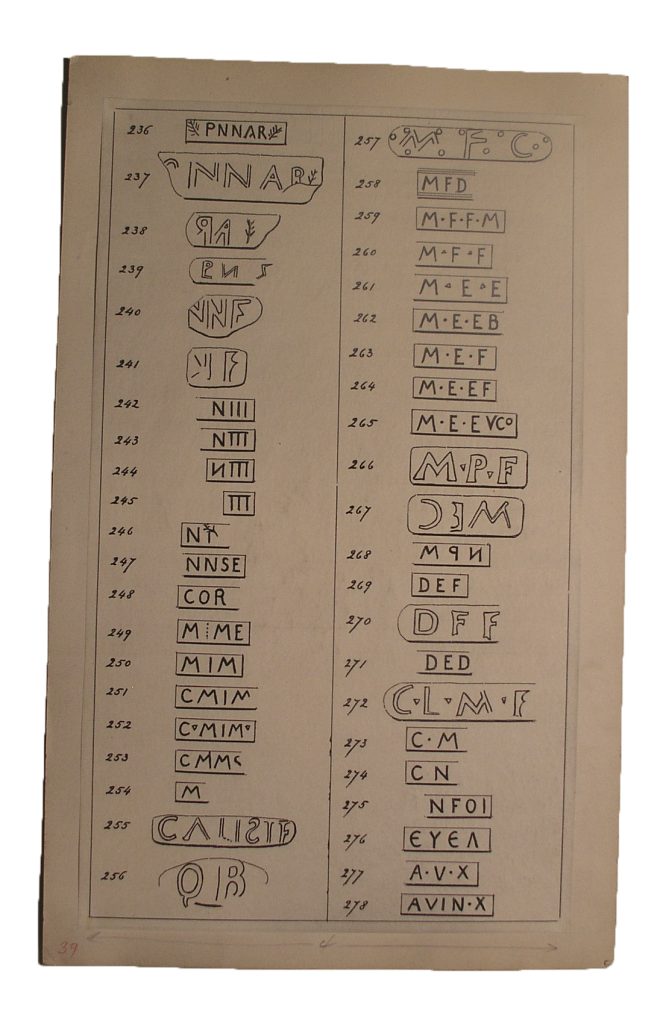 236 PNNAR
237 NNAR
238 ЯA
239 PNS
240 NNF
241 F
242 NIII
243 NIII
244 ИIII
245 III
246 NT
247 NNSE
248 COR
249 M⁝ME
250 MIM
251 CMIM
252 C•MIM•
253 CMMC
254 M
255 CALISTF
256 QB
257 M. F. C.
258 MFD
259 M·F·F·M
260 M·F·F
261 M·E·E
262 M·E·EB
263 M·E·F
264 M·E·EF
265 M·E·EVCO
266 M·P·F
267 ƆƎM
268 MꟼИ
269 DEF
270 DFF
271 DED
272 C·L·M·F
273 C·M
274 CN
275 NFOI
276 EYEΛ
277 A·V·X
278 AVIN·X
39